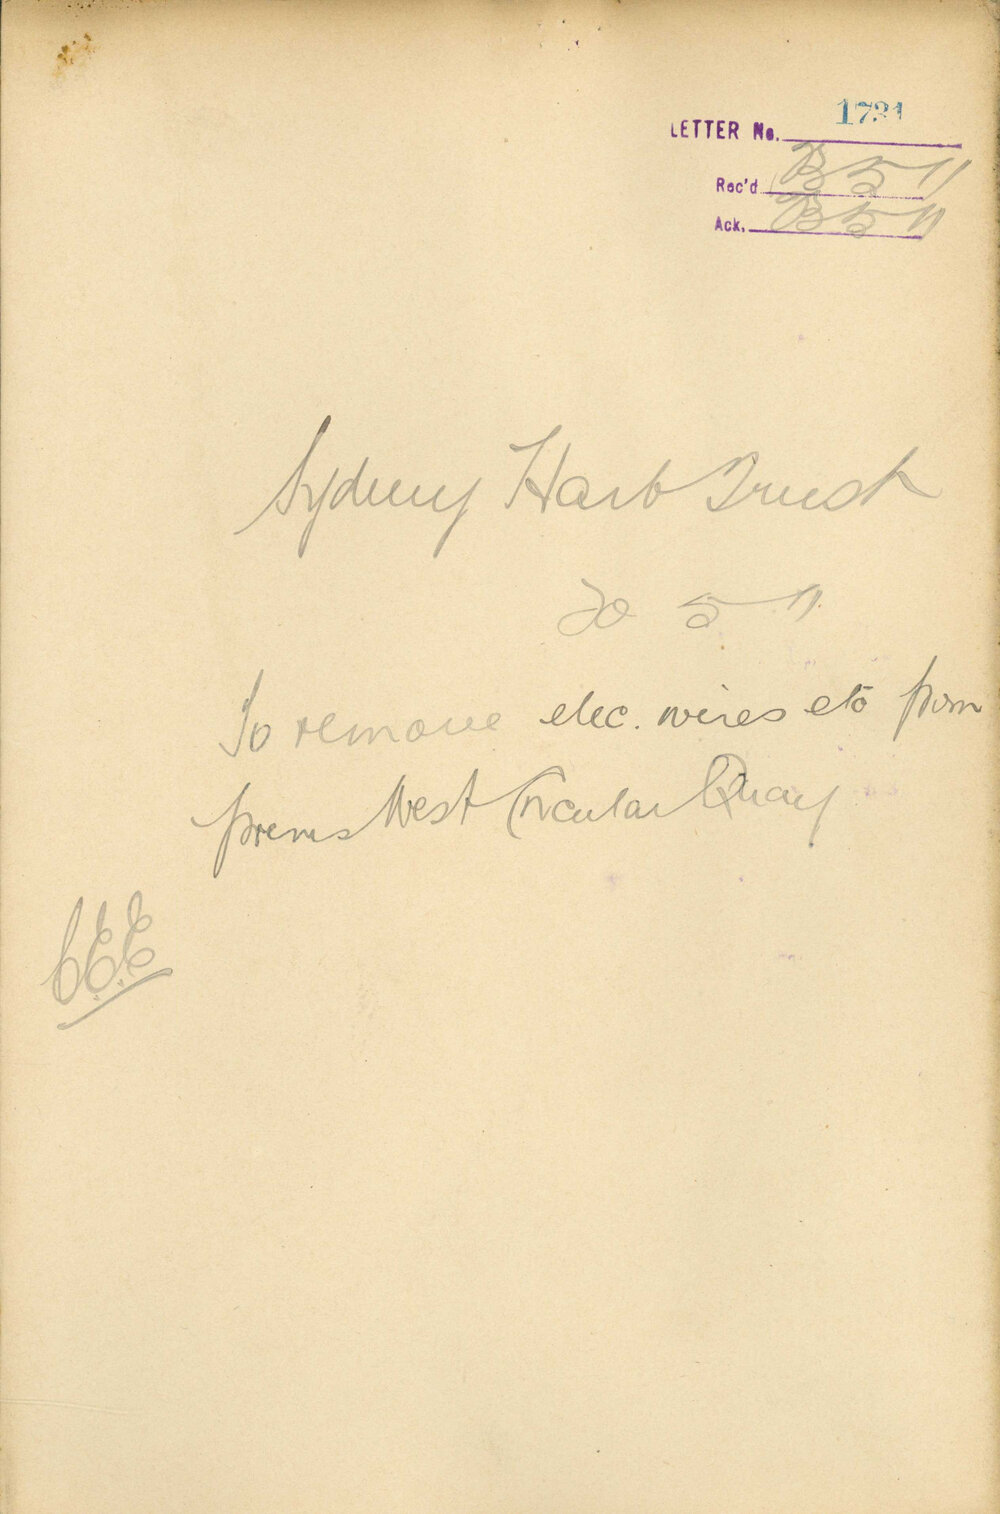 LETTER No. 1731
Rec'd 23 5 11
Ack. 23 5 11
Sydney Harb Trust
20 5 11
To remove elec. wires etc from
prems West Circular Quay
C.E.E